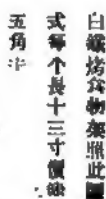 白鐵烤食物架照此圖
式每个長十三寸價銀
五角半